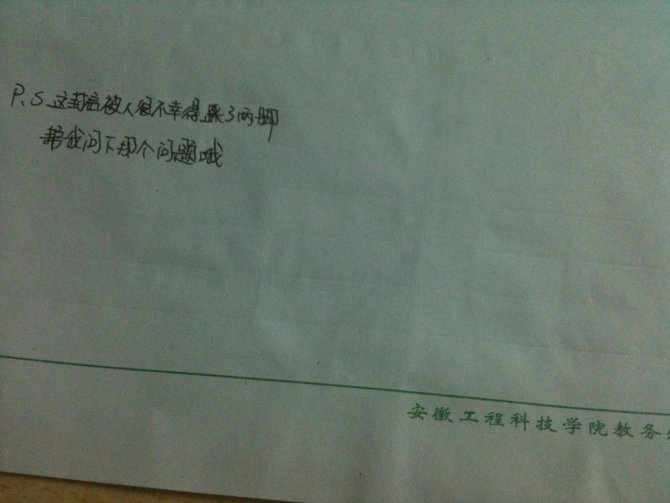 P.S 这封信被人很不幸得踩了两脚
帮我问下那个问题哦
安徽工程科技学院教务